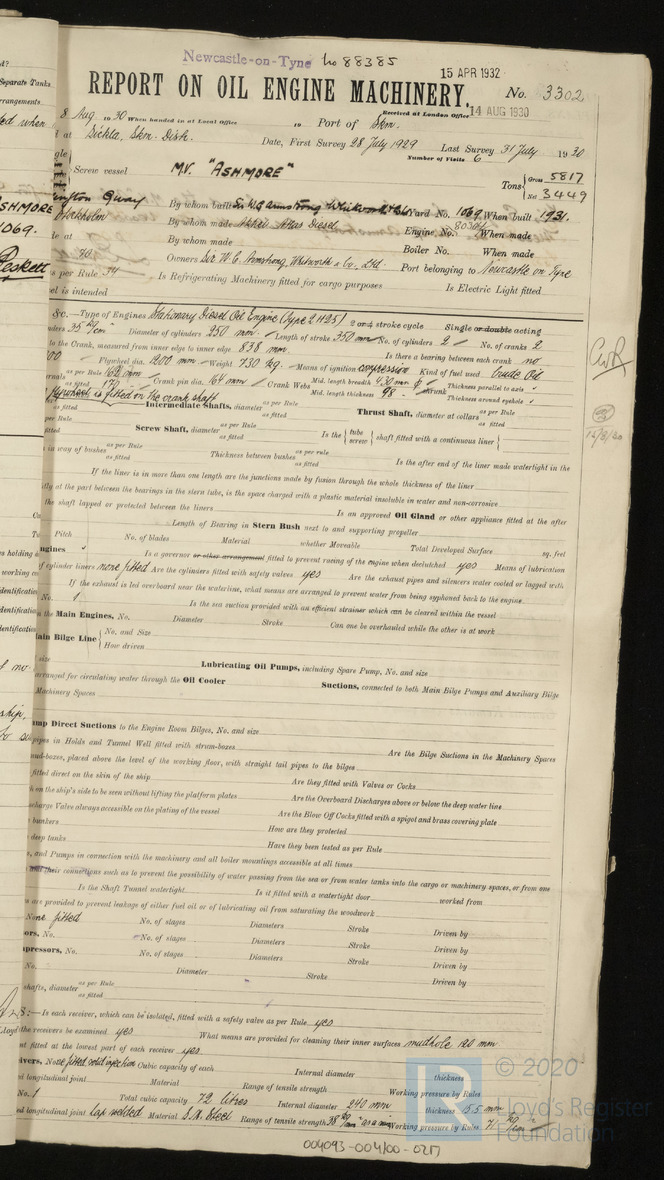 Newcastle-on-Tyne No 88385
15 APR 1932
REPORT ON OIL ENGINE MACHINERY.
No. 3302
14 AUG 1930
Received at London Office
8 Aug 1930 When handed in at Local Office 19 Port of Skm.
at Sickla, Skm. Disk. Date, First Survey 28 July 1929 Last Survey 31 July 1930
Number of Visits 6
Screw vessel M.V. "ASHMORE" Tons Gross 5817 Net 3449
By whom built Sir W.G. Armstrong Whitworth Yard No. 1069. When built 1931.
Stockholm By whom made Aktieb. Atlas Diesel Engine No. When made
By whom made Boiler No. When made
Owners Sir W. G. Armstrong, Whitworth & Co., Ltd. Port belonging to Newcastle on Tyne
s per Rule 34 Is Refrigerating Machinery fitted for cargo purposes Is Electric Light fitted
el is intended
&c.—Type of Engines Stationary Diesel Oil Engine (type 2H25) 2 or 4 stroke cycle Single or double acting
nders 35 kg/cm² Diameter of cylinders 250 mm. Length of stroke 350 mm No. of cylinders 2 No. of cranks 2
to the Crank, measured from inner edge to inner edge 838 mm. Is there a bearing between each crank no
Flywheel dia. 1200 mm Weight 730 kg. Means of ignition compression Kind of fuel used Crude Oil
rnals as per Rule 162 mm as fitted 170 Crank pin dia. 164 mm Crank Webs Mid. length breadth 430 mm Mid. length thickness 98 shrunk Thickness parallel to axis Thickness around eyehole
Flywheel is fitted on the crank shaft
as fitted Intermediate Shafts, diameter as per Rule as fitted Thrust Shaft, diameter at collars as per Rule as fitted
per Rule as fitted Screw Shaft, diameter as per Rule as fitted Is the { tube screw } shaft fitted with a continuous liner {
s in way of bushes as per Rule as fitted Thickness between bushes as per rule as fitted Is the after end of the liner made watertight in the
If the liner is in more than one length are the junctions made by fusion through the whole thickness of the liner
tly at the part between the bearings in the stern tube, is the space charged with a plastic material insoluble in water and non-corrosive
the shaft lapped or protected between the liners Is an approved Oil Gland or other appliance fitted at the after
Length of Bearing in Stern Bush next to and supporting propeller
Pitch No. of blades Material whether Moveable Total Developed Surface sq. feet
ngines Is a governor or other arrangement fitted to prevent racing of the engine when declutched yes Means of lubrication
of cylinder liners none fitted Are the cylinders fitted with safety valves yes Are the exhaust pipes and silencers water cooled or lagged with
If the exhaust is led overboard near the waterline, what means are arranged to prevent water from being syphoned back to the engine
No. 1 Is the sea suction provided with an efficient strainer which can be cleared within the vessel
n the Main Engines, No. Diameter Stroke Can one be overhauled while the other is at work
ain Bilge Line { No. and Size How driven
size Lubricating Oil Pumps, including Spare Pump, No. and size
arranged for circulating water through the Oil Cooler Suctions, connected to both Main Bilge Pumps and Auxiliary Bilge
Machinery Spaces
ump Direct Suctions to the Engine Room Bilges, No. and size
pipes in Holds and Tunnel Well fitted with strum-boxes Are the Bilge Suctions in the Machinery Spaces
ud-boxes, placed above the level of the working floor, with straight tail pipes to the bilges
fitted direct on the skin of the ship Are they fitted with Valves or Cocks
h on the ship's side to be seen without lifting the platform plates Are the Overboard Discharges above or below the deep water line
scharge Valve always accessible on the plating of the vessel Are the Blow Off Cocks fitted with a spigot and brass covering plate
bunkers How are they protected
deep tanks Have they been tested as per Rule
s, and Pumps in connection with the machinery and all boiler mountings accessible at all times
and their connections such as to prevent the possibility of water passing from the sea or from water tanks into the cargo or machinery spaces, or from one
Is the Shaft Tunnel watertight Is it fitted with a watertight door worked from
s are provided to prevent leakage of either fuel oil or of lubricating oil from saturating the woodwork
None fitted No. of stages Diameters Stroke Driven by
ors, No. No. of stages Diameters Stroke Driven by
mpressors, No. No. of stages Diameters Stroke Driven by
No. Diameter Stroke Driven by
shafts, diameter as per Rule as fitted
S:—Is each receiver, which can be isolated, fitted with a safety valve as per Rule yes
the receivers be examined yes What means are provided for cleaning their inner surfaces mudhole 120 mm
nt fitted at the lowest part of each receiver yes
ivers, None fitted solid injection Cubic capacity of each Internal diameter thickness
d longitudinal joint Material Range of tensile strength Working pressure by Rules
No. 1 Total cubic capacity 72 litres Internal diameter 240 mm thickness 5.5 mm
nd longitudinal joint lap welded Material S.M. Steel Range of tensile strength Working pressure by Rules
© 2020
Lloyd's Register
Foundation
004093-004100-0217